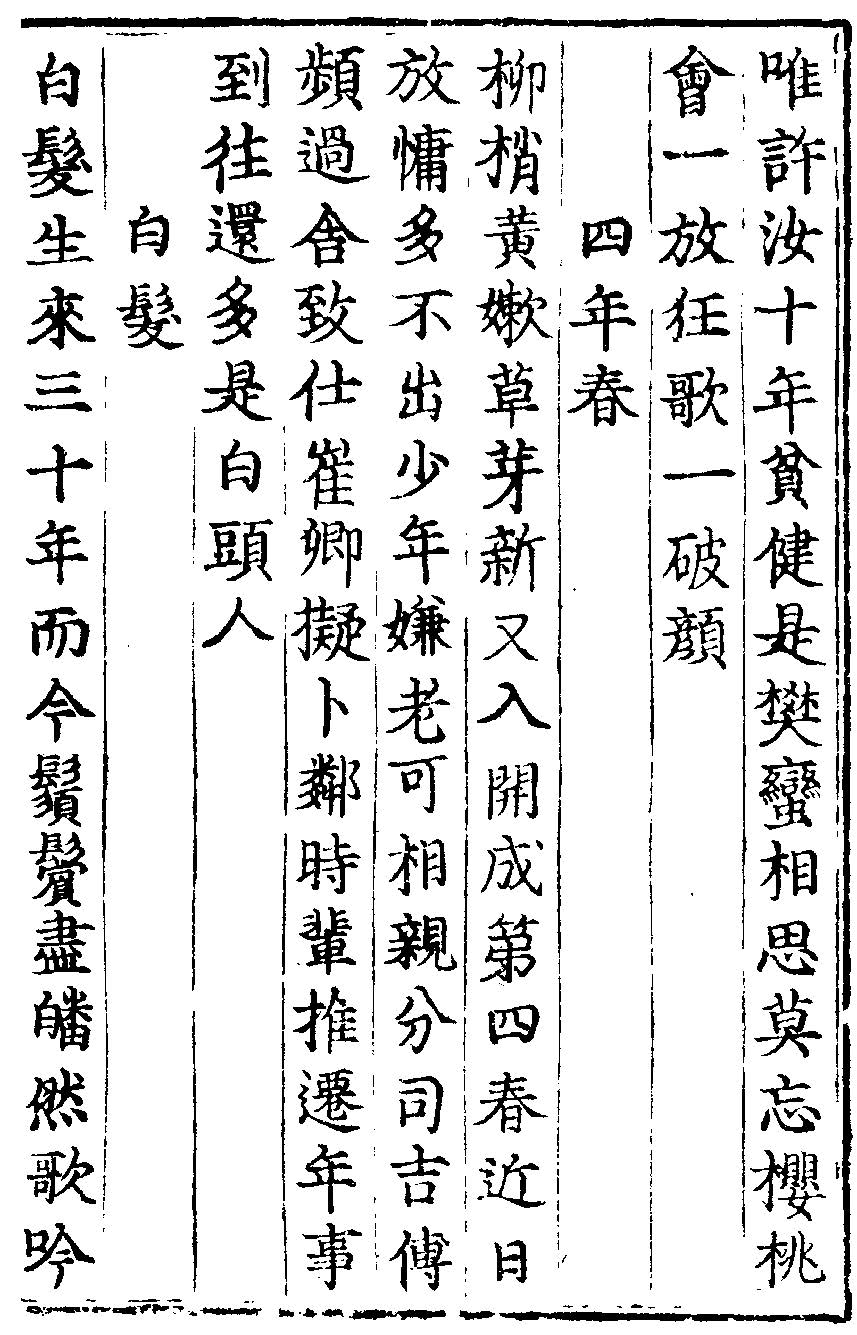 唯許汝十年貧健是樊蠻相思莫忘櫻桃
會一放狂歌一破顔
四年春
柳梢黄嫩草芽新又入開成第四春近日
放慵多不出少年嫌老可相親分司吉傅
頻過舎致仕崔卿擬卜鄰時輩推遷年事
到往還多是白頭人
白髮
白髮生來三十年而今鬚鬢盡皤然歌吟